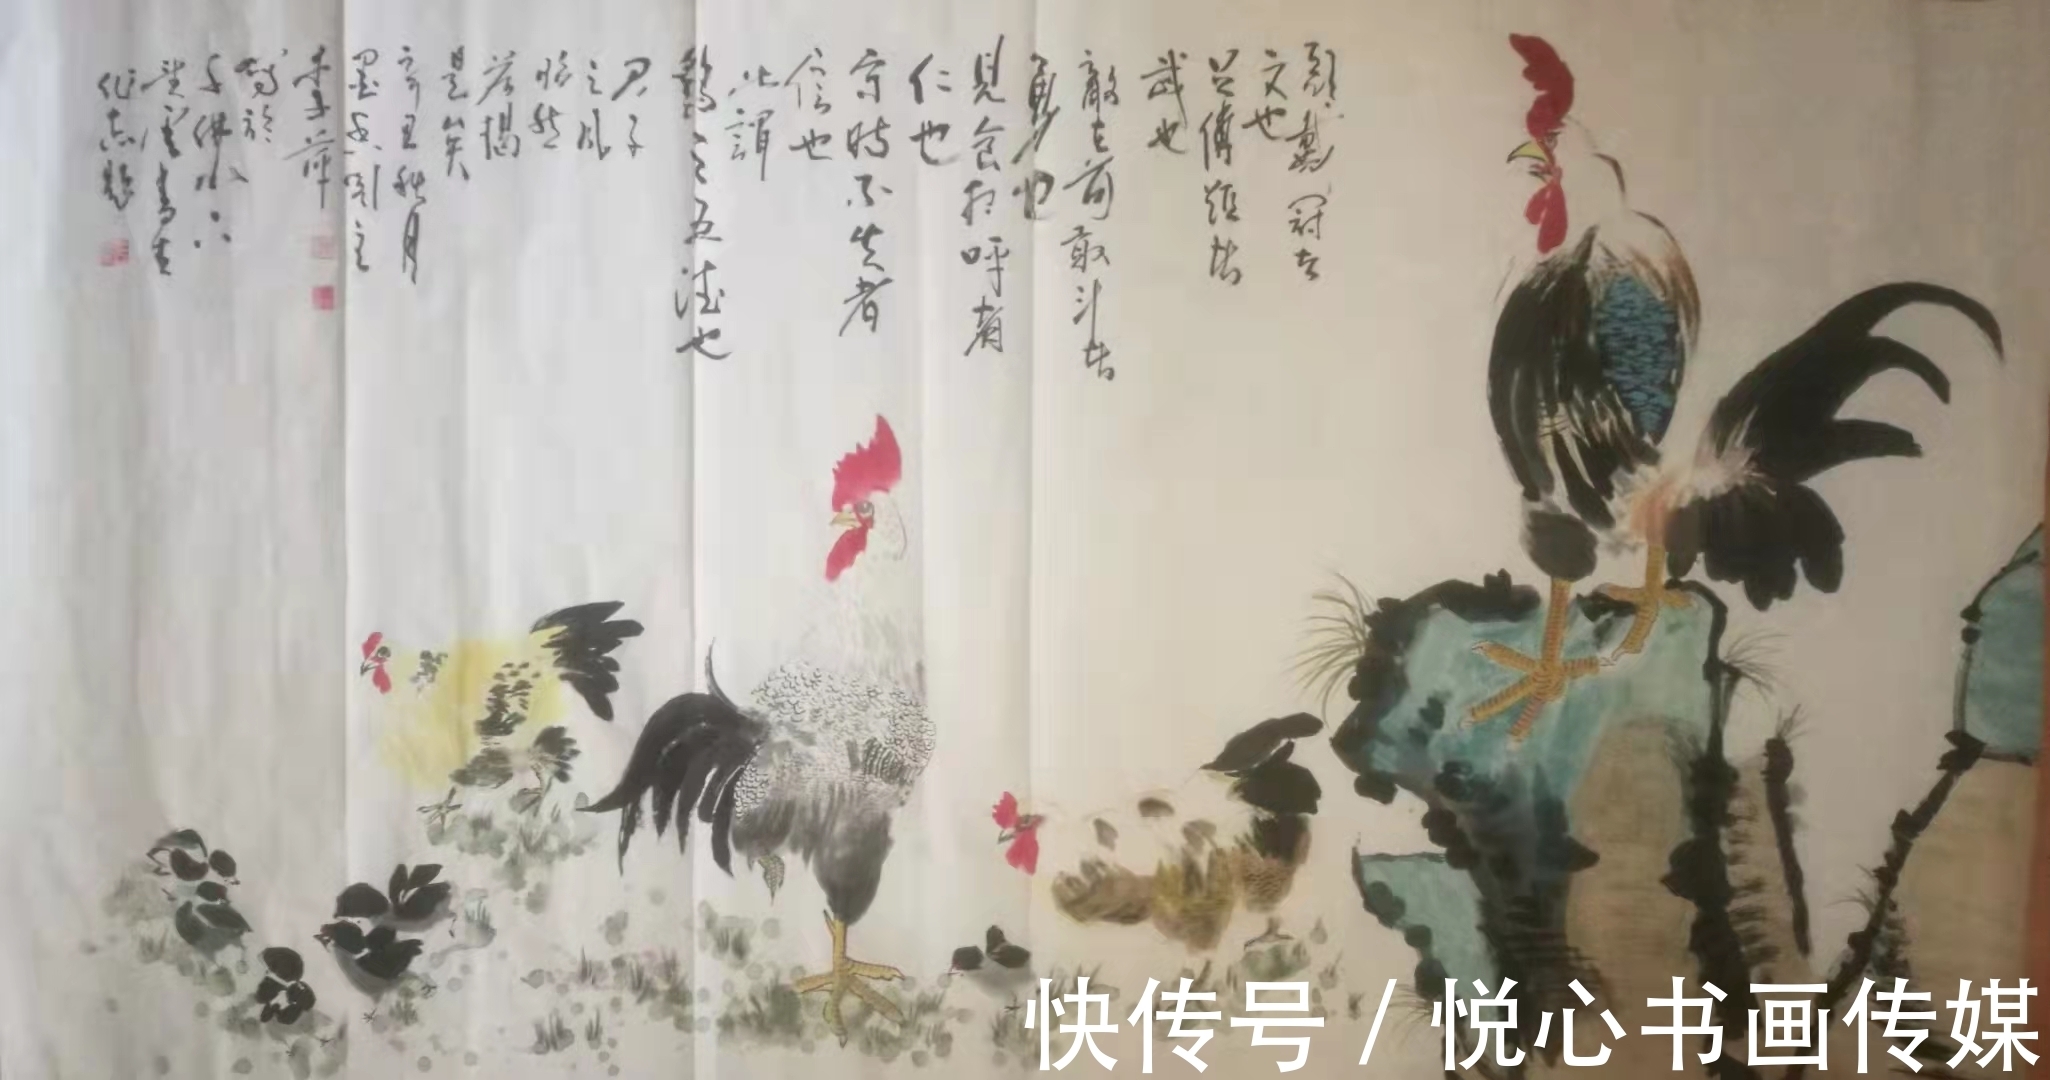 头戴冠者
文也
足傅距者
武也
敌在前敢斗者
勇也
見食相呼者
仁也
守时不失者
信也
此謂
鷄之五德也
君子
之风
昭然
若揭
是矣
辛丑秋月
李萍
写於
快传号 / 悦心书画传媒